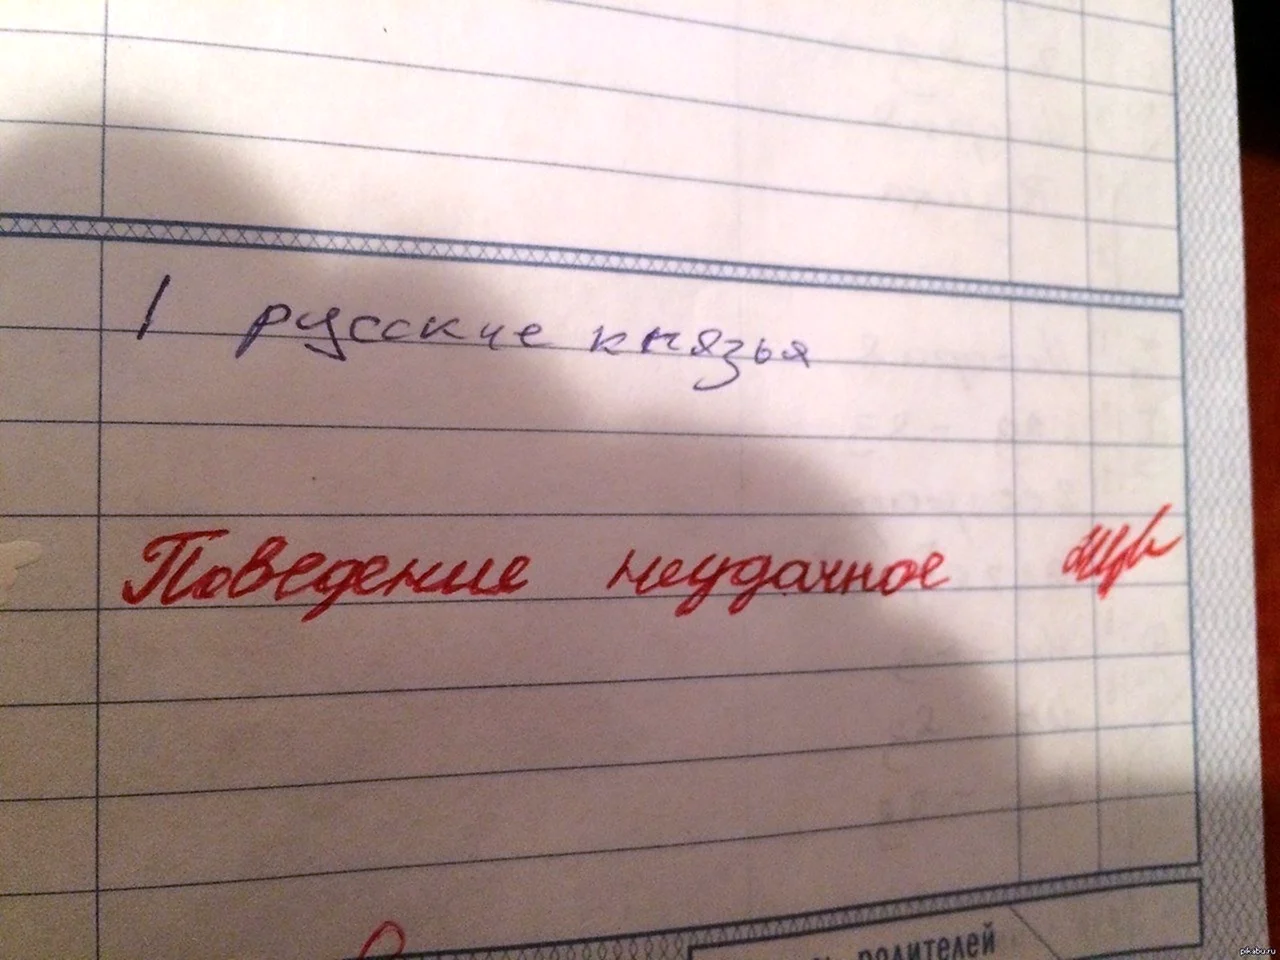 1 русские князья
Поведение неудачное
родителей
pikabu.ru